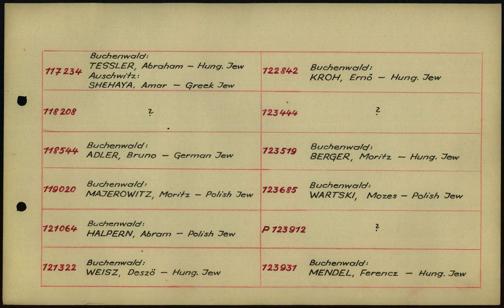 117234 Buchenwald:
TESSLER, Abraham — Hung. Jew
Auschwitz:
SHEHAYA, Amar — Greek Jew
118208 ?
118544 Buchenwald:
ADLER, Bruno — German Jew
119020 Buchenwald:
MAJEROWITZ, Moritz — Polish Jew
121064 Buchenwald:
HALPERN, Abram — Polish Jew
121322 Buchenwald:
WEISZ, Deszö — Hung. Jew
122842 Buchenwald:
KROH, Ernö — Hung. Jew
123444 ?
123519 Buchenwald:
BERGER, Moritz — Hung. Jew
123685 Buchenwald:
WARTSKI, Mozes — Polish Jew
P 123912 ?
123931 Buchenwald:
MENDEL, Ferencz — Hung. Jew